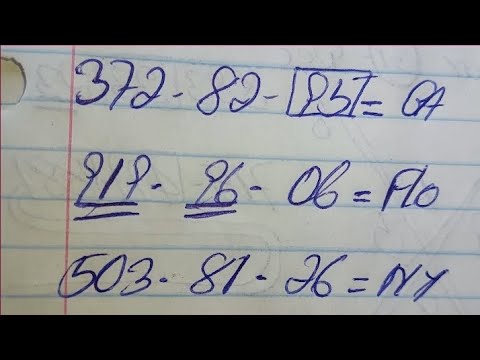 372-82-957=GA
919-96-06=Flo
503-81-26=NY